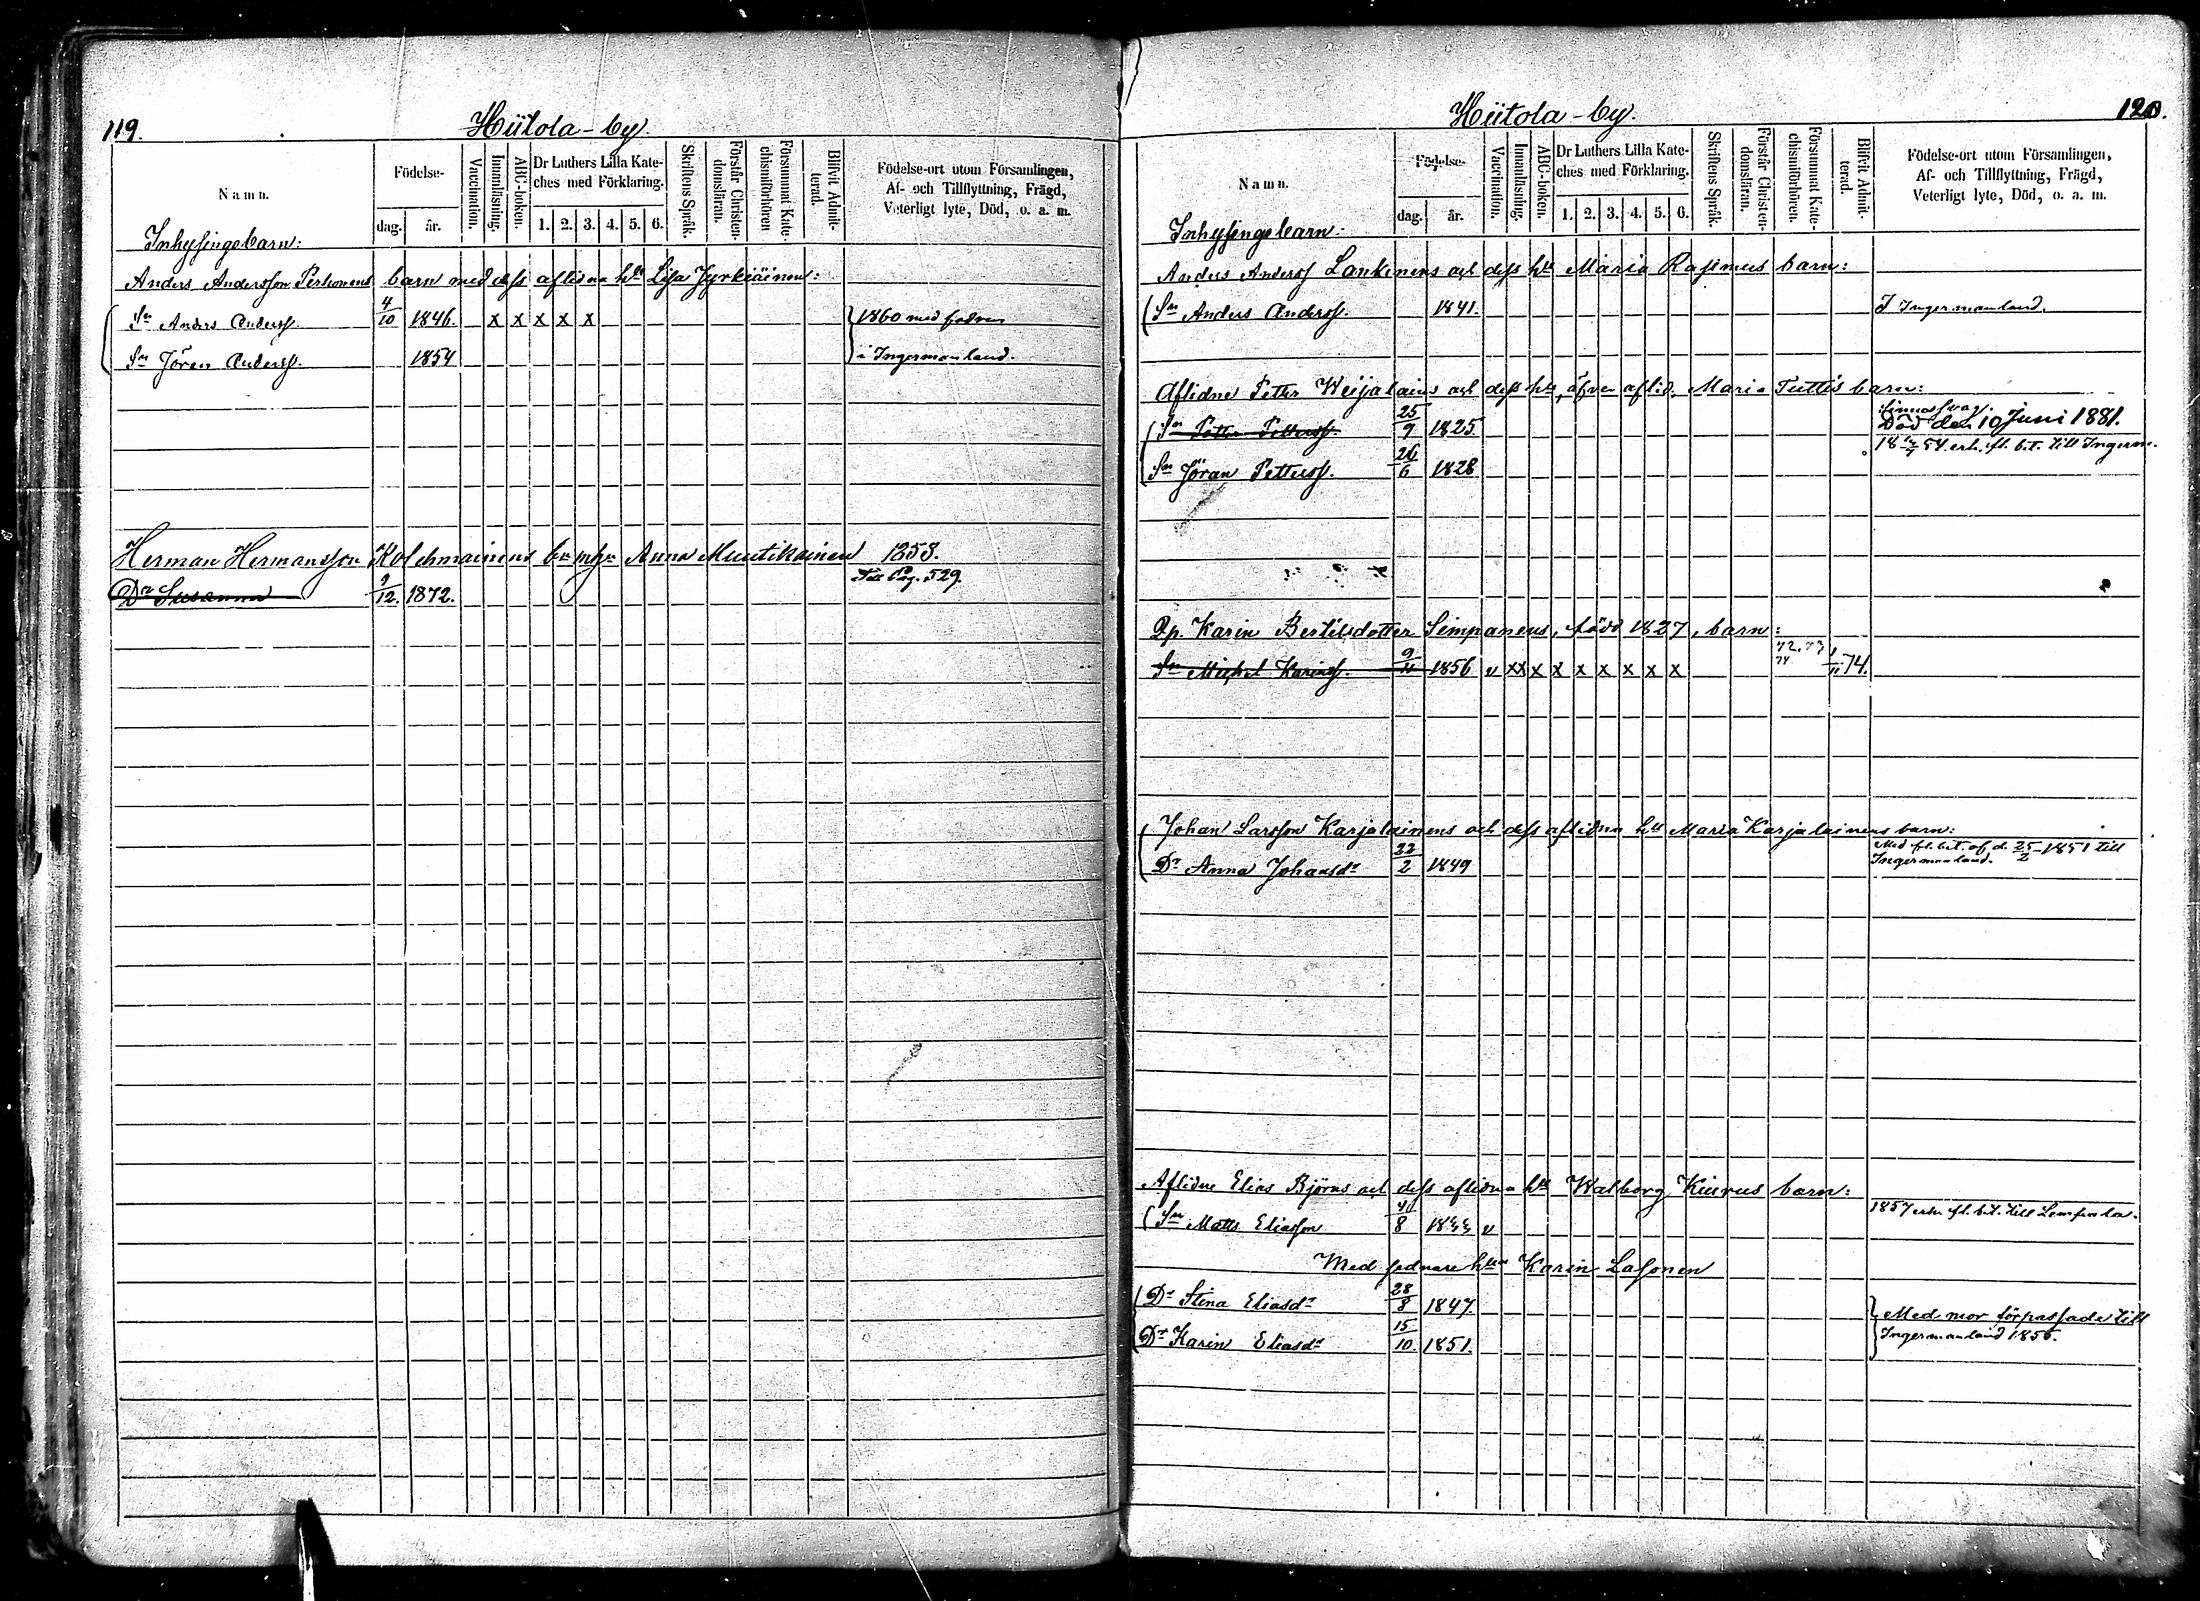 119.
Hiitola-by.
Namn.
Födelse-
dag.
år.
Vaccination.
Innanläsning.
ABC-boken.
Dr Luthers Lilla Kate-
ches med Förklaring.
1. 2. 3. 4. 5. 6.
Skriftens Språk.
Förstår Christen-
domsläran.
Försummat Kate-
chismiförhören
Blifvit Admit-
terad.
Födelse-ort utom Församlingen,
Af- och Tillflyttning, Frägd,
Veterligt lyte, Död, o. a. m.
Inhysingebarn:
Anders Andersson Pertonens barn med dess aflidna h:u Lisa Jyrkiäinen:
Sn Anders Anderss. 4/10 1846. x x x x x 1860 med fadren
Sn Jören Anderss. 1854 i Ingermanland.
Herman Hermansson Kolehmainens Anna Muutikainen 1858.
Dr Susanna 9/12. 1872. Till Pag. 529.
120.
Hiitola-by.
Namn.
Födelse-
dag.
år.
Vaccination.
Innanläsning.
ABC-boken.
Dr Luthers Lilla Kate-
ches med Förklaring.
1. 2. 3. 4. 5. 6.
Skriftens Språk.
Förstår Christen-
domsläran.
Försummat Kate-
chismiförhören.
Blifvit Admit-
terad.
Födelse-ort utom Församlingen,
Af- och Tillflyttning, Frägd,
Veterligt lyte, Död, o. a. m.
Inhysingebarn:
Anders Anderss Lankinens och dess h:u Maria Rasimus barn:
Sn Anders Anderss. 1841. I Ingermanland.
Aflidne Petter Weijalains och dess h:u, äfven aflid. Maria Tuttis barn:
Sinnessvag.
Sn Petter Petterss. 25/9 1825. Död den 10 Juni 1881.
Sn Jöran Petterss. 26/6 1828 54 erh. fl. bet. till Ingerm.
Qp. Karin Bertilsdotter Simpanens, född 1827, barn:
Sn Michel Karinss. 9/11 1856 v xx x x x x x x x 72. 73 74. 1/11 74.
Johan Larsson Karjalainens och dess aflidna h:u Maria Karjalainens barn:
Dr Anna Johansdr 22/2 1849 Med fl. bet. af d. 25/2 1851 till
Ingermanland.
Aflidne Elias Björns och dess aflidna h:u Walborg Kiurus barn:
Sn Matts Eliasson 8 v 1857 erh. fl. bet. till Lempala.
Med sednare h:un Karin Lasonen
Dr Stina Eliasdr 28/8 1847. Med mor förpassade till
Dr Karin Eliasdr 15/10. 1851. Ingermanland 1856.